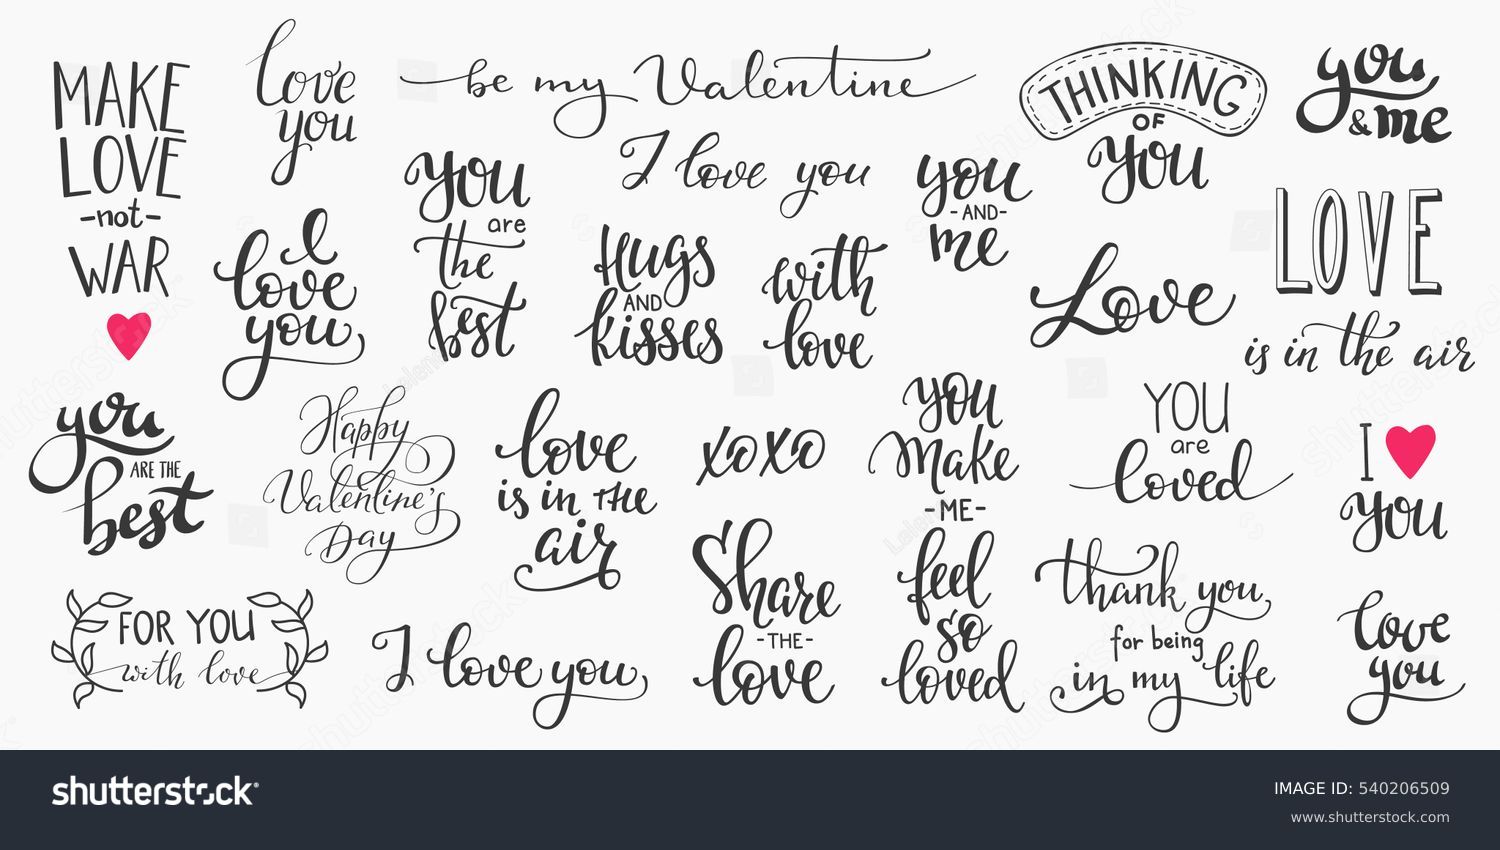 MAKE
LOVE
-not-
WAR
love
you
be my Valentine
THINKING
OF
you
you
& me
You
are
the
best
I love you
you
- AND -
me
I
love
you
Hugs
AND
kisses
with
love
Love
LOVE
is in the air
you
ARE THE
best
Happy
Valentine's
Day
love
is in THE
air
xoxo
you
make
- ME -
feel
so
loved
YOU
are
loved
I
you
FOR YOU
with love
I love you
Share
- THE -
love
thank you
for being
in my life
love
you
shutterstock
IMAGE ID: 540206509
www.shutterstock.com